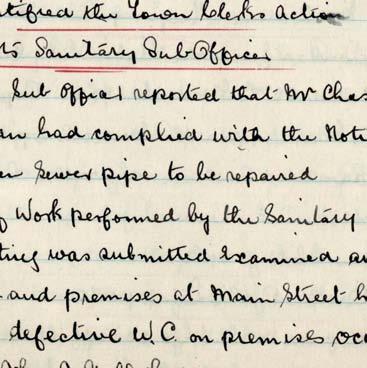 tified the Town Clerks action
ts Sanitary Sub Officer
Sub Officer reported that Mr Chas
an had complied with the Noti
er Sewer pipe to be repaired
of Work performed by the Sanitary
ting was submitted examined an
and premises at Main Street h
defective W.C. on premises occ